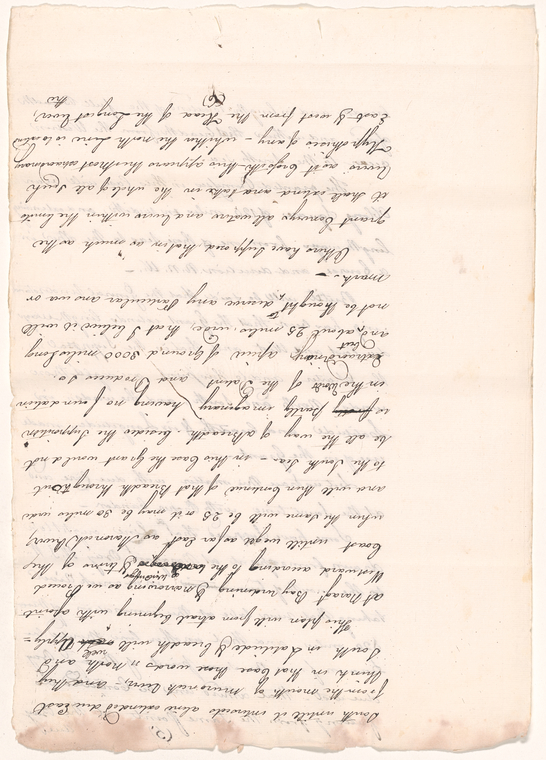 South untill it intersects a line extended due East
from the mouth of Merrimack River, and they
think in that Case these words in North and
South in Latitude & breadth will Apply =
This plan will from a bad begining with a point
at Narag.t Bay widening & narrowing as we Proceed
Westward according to the windings & turns of the
Coast untill we get as far East as River
when the same will be 25 or it may be 30 miles wide
and will then Continue of that Breadth throughout
to the South Sea - in this Case the grant would not
be all the way of a breadth. besides the Supposition
is purely imaginary having no foundation
in the Words of the Patent and Produces so
Extraordinary a peice of ground 3000 miles long
but
and about 25 miles wide, that I believe it will
not be thought to deserve any Particular answer or
mark. -
Others have Supposed that in as much as the
grant Conveys all waters and rivers within the limits
it shall extend and take in the whole of all Such
rivers as it - this appears the most extraordinary
Hypothesis of any - whether the north Line is located
East & west from the Head of the Longest River,
(6) this